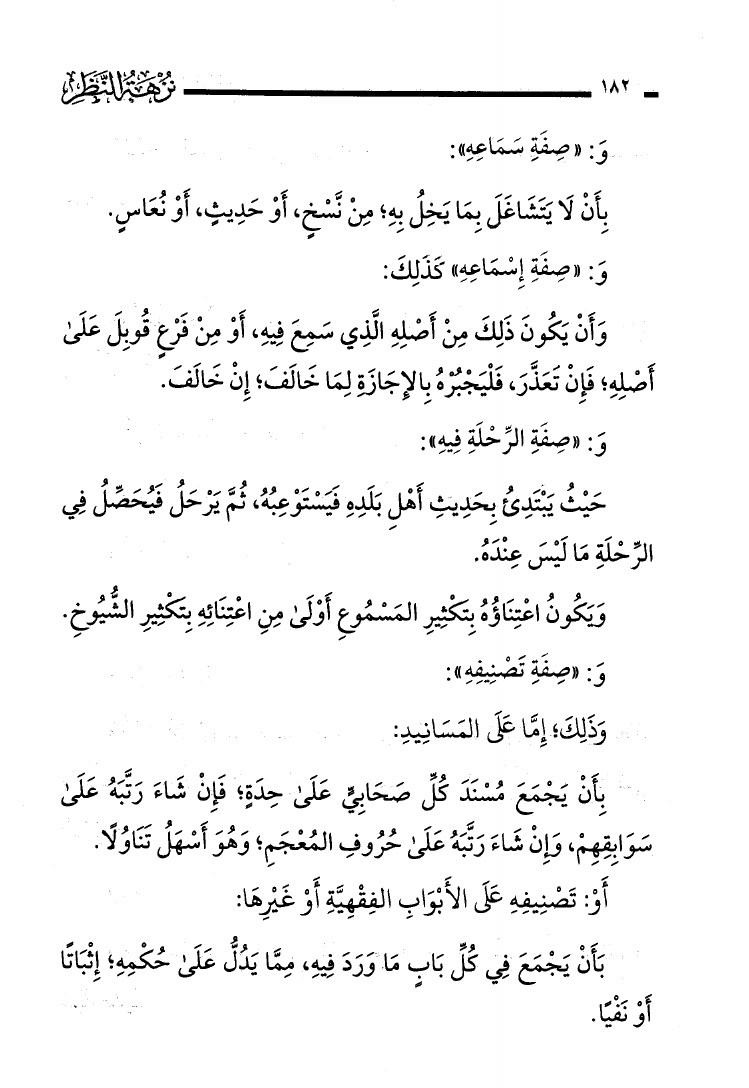 ١٨٢ نُزْهَةُ النَّظَرِ
وَ: «صِفَةِ سَمَاعِهِ»:
بِأَنْ لَا يَتَشَاغَلَ بِمَا يَخِلُّ بِهِ؛ مِنْ نَّسْخٍ، أَوْ حَدِيثٍ، أَوْ نُعَاسٍ.
وَ: «صِفَةِ إِسْمَاعِهِ» كَذَلِكَ:
وَأَنْ يَكُونَ ذَلِكَ مِنْ أَصْلِهِ الَّذِي سَمِعَ فِيهِ، أَوْ مِنْ فَرْعٍ قُوبِلَ عَلَىٰ
أَصْلِهِ؛ فَإِنْ تَعَذَّرَ، فَلْيَجْبُرْهُ بِالإِجَازَةِ لِمَا خَالَفَ؛ إِنْ خَالَفَ.
وَ: «صِفَةِ الرِّحْلَةِ فِيهِ»:
حَيْثُ يَبْتَدِئُ بِحَدِيثِ أَهْلِ بَلَدِهِ فَيَسْتَوْعِبُهُ، ثُمَّ يَرْحَلُ فَيُحَصِّلُ فِي
الرِّحْلَةِ مَا لَيْسَ عِنْدَهُ.
وَيَكُونُ اعْتِنَاؤُهُ بِتَكْثِيرِ المَسْمُوعِ أَوْلَىٰ مِنِ اعْتِنَائِهِ بِتَكْثِيرِ الشُّيُوخِ.
وَ: «صِفَةِ تَصْنِيفِهِ»:
وَذَلِكَ؛ إِمَّا عَلَى المَسَانِيدِ:
بِأَنْ يَجْمَعَ مُسْنَدَ كُلِّ صَحَابِيٍّ عَلَىٰ حِدَةٍ؛ فَإِنْ شَاءَ رَتَّبَهُ عَلَىٰ
سَوَابِقِهِمْ، وَإِنْ شَاءَ رَتَّبَهُ عَلَىٰ حُرُوفِ المُعْجَمِ؛ وَهُوَ أَسْهَلُ تَنَاوُلًا.
أَوْ: تَصْنِيفِهِ عَلَى الأَبْوَابِ الفِقْهِيَّةِ أَوْ غَيْرِهَا:
بَأَنْ يَجْمَعَ فِي كُلِّ بَابٍ مَا وَرَدَ فِيهِ، مِمَّا يَدُلُّ عَلَىٰ حُكْمِهِ؛ إِثْبَاتًا
أَوْ نَفْيًا.